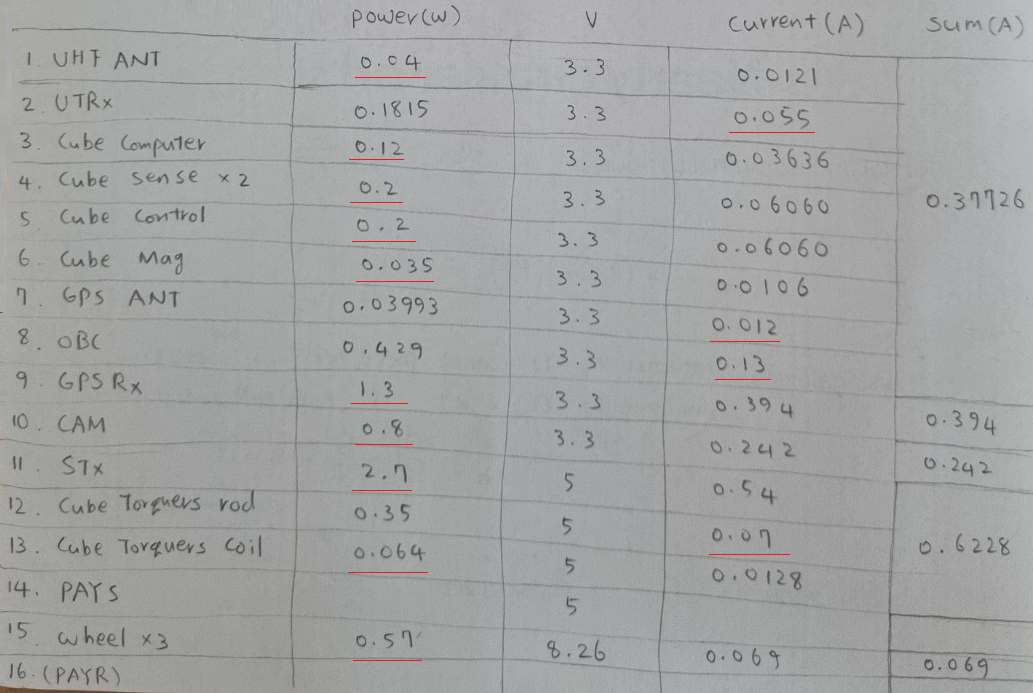 power(w) V Current(A) Sum(A)
1. UHF ANT 0.04 3.3 0.0121
2. UTRx 0.1815 3.3 0.055
3. Cube Computer 0.12 3.3 0.03636
4. Cube Sense x2 0.2 3.3 0.06060 0.37726
5. Cube Control 0.2 3.3 0.06060
6. Cube Mag 0.035 3.3 0.0106
7. GPS ANT 0.03993 3.3 0.012
8. OBC 0.429 3.3 0.13
9. GPS Rx 1.3 3.3 0.394 0.394
10. CAM 0.8 3.3 0.242 0.242
11. STx 2.7 5 0.54
12. Cube Torquers rod 0.35 5 0.07 0.6228
13. Cube Torquers Coil 0.064 5 0.0128
14. PAYS 5
15. wheel x3 0.57 8.26 0.069 0.069
16. (PAYR)